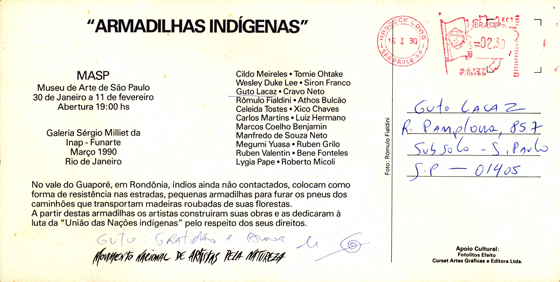 "ARMADILHAS INDÍGENAS"
MASP
Museu de Arte de São Paulo
30 de Janeiro a 11 de fevereiro
Abertura 19:00 hs
Galeria Sérgio Milliet da
Inap - Funarte
Março 1990
Rio de Janeiro
Cildo Meireles • Tomie Ohtake
Wesley Duke Lee • Siron Franco
Guto Lacaz • Cravo Neto
Rômulo Fialdini • Athos Bulcão
Celeida Tostes • Xico Chaves
Carlos Martins • Luiz Hermano
Marcos Coelho Benjamin
Manfredo de Souza Neto
Megumi Yuasa • Ruben Grilo
Ruben Valentin • Bene Fonteles
Lygia Pape • Roberto Micoli
No vale do Guaporé, em Rondônia, índios ainda não contactados, colocam como
forma de resistência nas estradas, pequenas armadilhas para furar os pneus dos
caminhões que transportam madeiras roubadas de suas florestas.
A partir destas armadilhas os artistas construiram suas obras e as dedicaram à
luta da "União das Nações indígenas" pelo respeito dos seus direitos.
Guto: Gratidão e
MOVIMENTO NACIONAL DE ARTISTAS PELA NATUREZA
Foto: Rômulo Fialdini
16 I 90
SÃO PAULO
BRASIL
02,30
Guto Lacaz
R. Pamplona, 857
Subsolo - S. Paulo
S.P - 01405
Apoio Cultural:
Fotolitos Efeito
Corset Artes Gráficas e Editora Ltda.